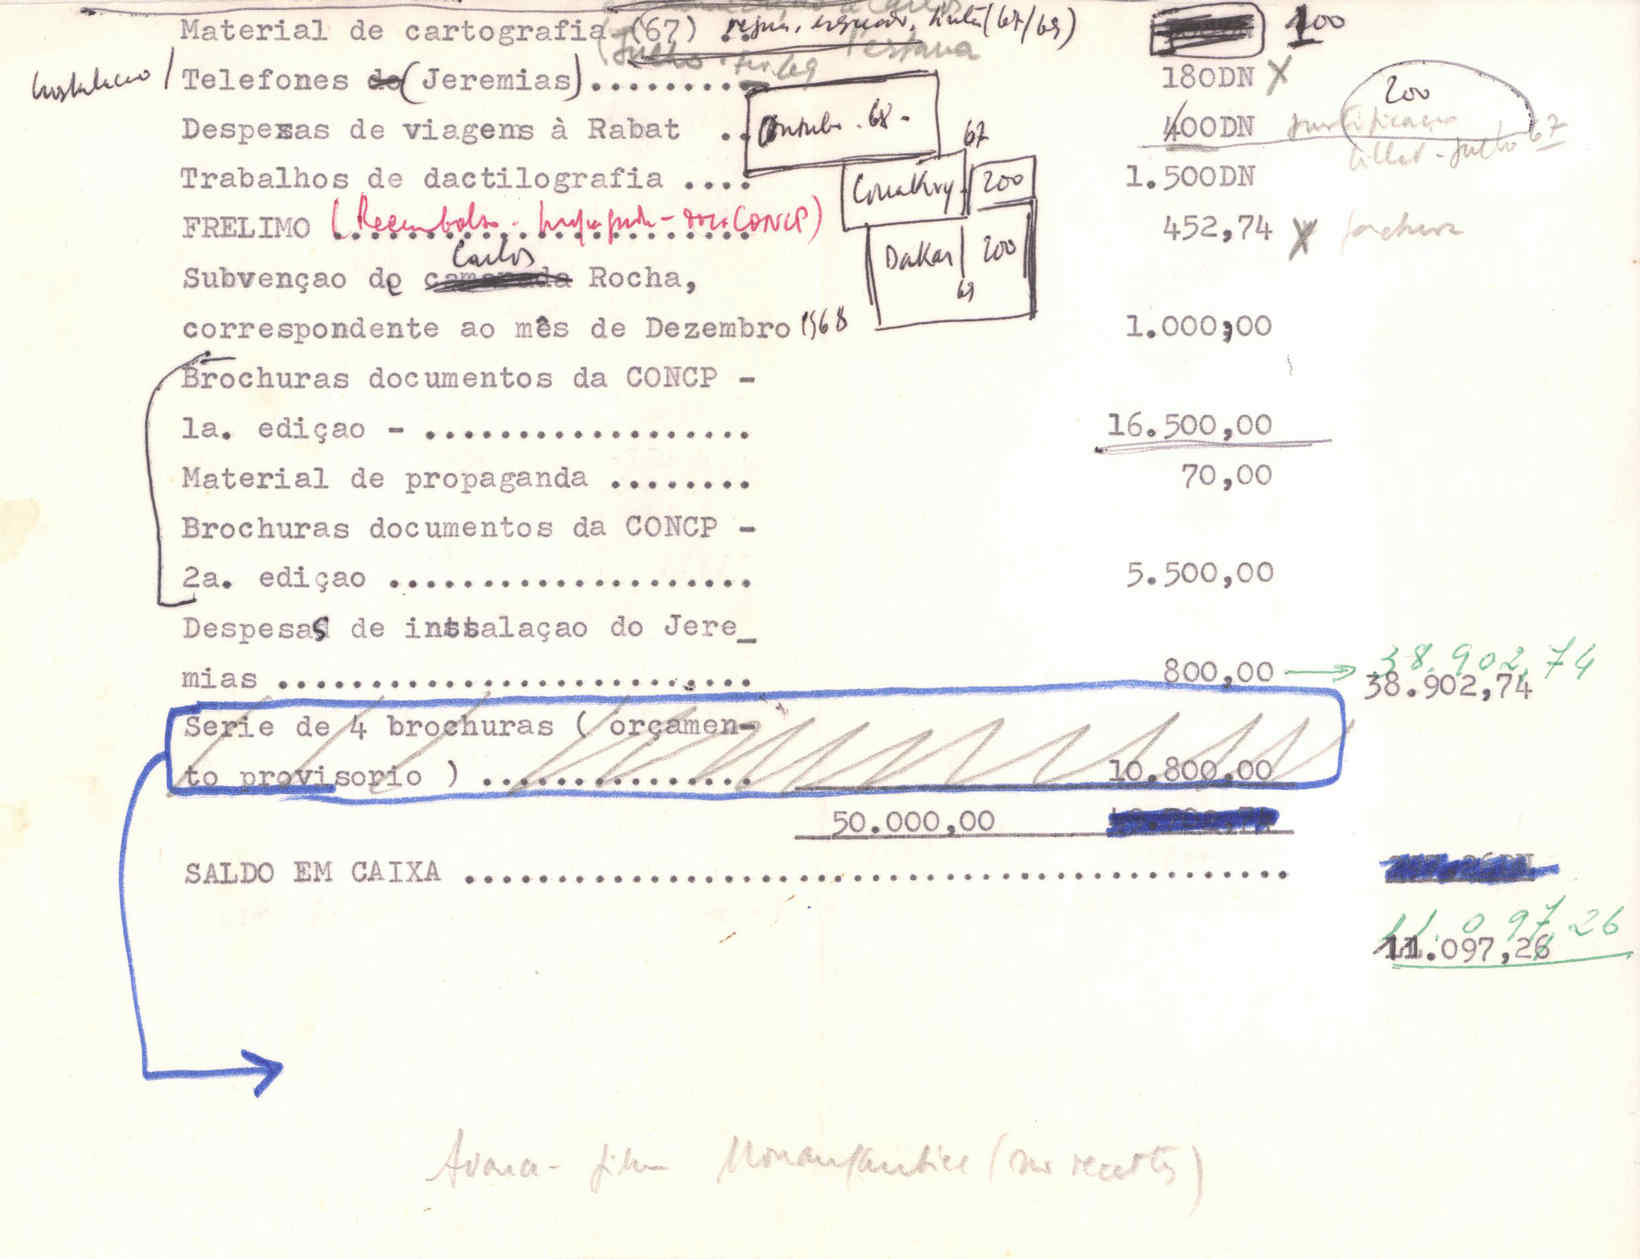 Material de cartografia (67) .. regua, esquadro, tinta (67/69) 100
Telefones de (Jeremias).......... 180DN X
200
Despesas de viagens à Rabat .. Outubro . 68 . 400DN
67
Trabalhos de dactilografia .... Conakry 200 1.500DN
FRELIMO (Reembolso - CONCP) 452,74 X
Carlos
Dakar 200
69
Subvençao de camarada Rocha,
correspondente ao mês de Dezembro 1968 1.000,00
Brochuras documentos da CONCP -
1a. ediçao - .................. 16.500,00
Material de propaganda ........ 70,00
Brochuras documentos da CONCP -
2a. ediçao .................... 5.500,00
Despesas de instalaçao do Jere_
38.902,74
mias .......................... 800,00 38.902,74
Serie de 4 brochuras ( orçamen-
to provisorio ) ............... 10.800,00
50.000,00
SALDO EM CAIXA .............................................
11.097,26
11.097,26